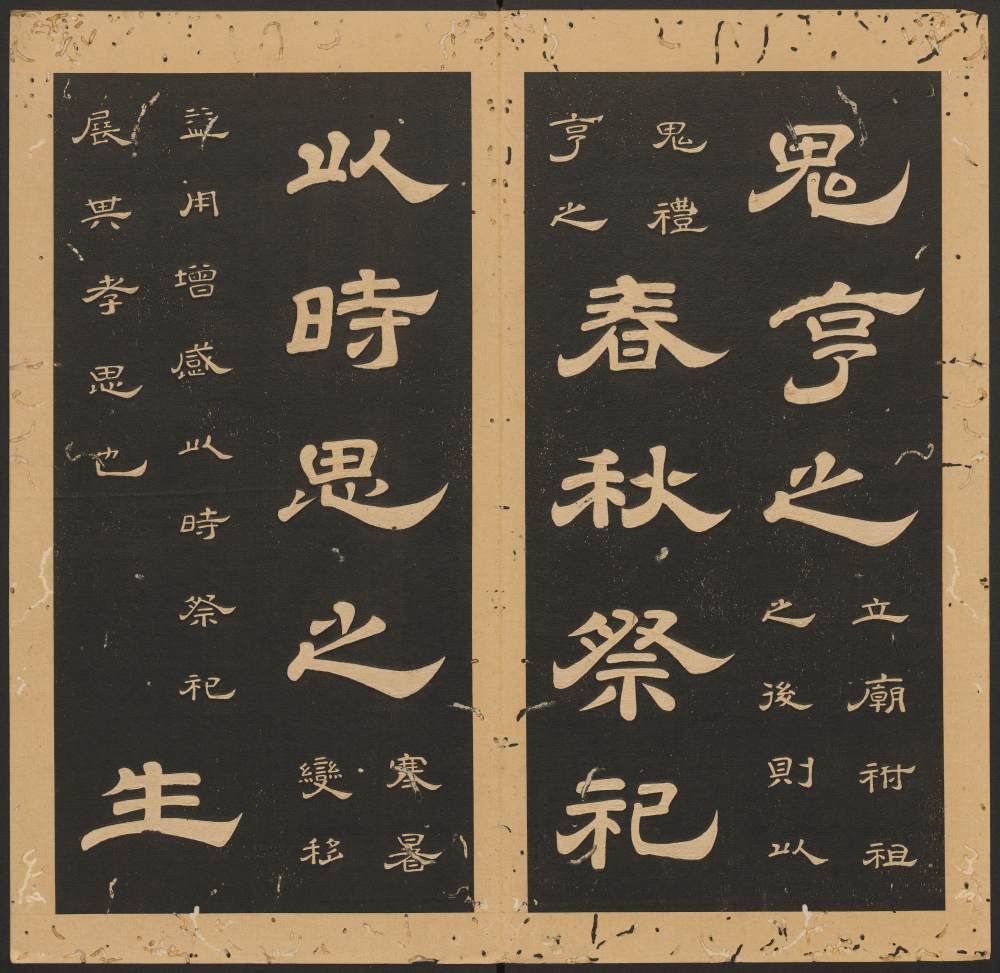 鬼亨之立廟祔祖
之後則以
鬼禮
亨之春秋祭祀
以時思之寒暑
變移
益用增感以時祭祀
展其孝思也生